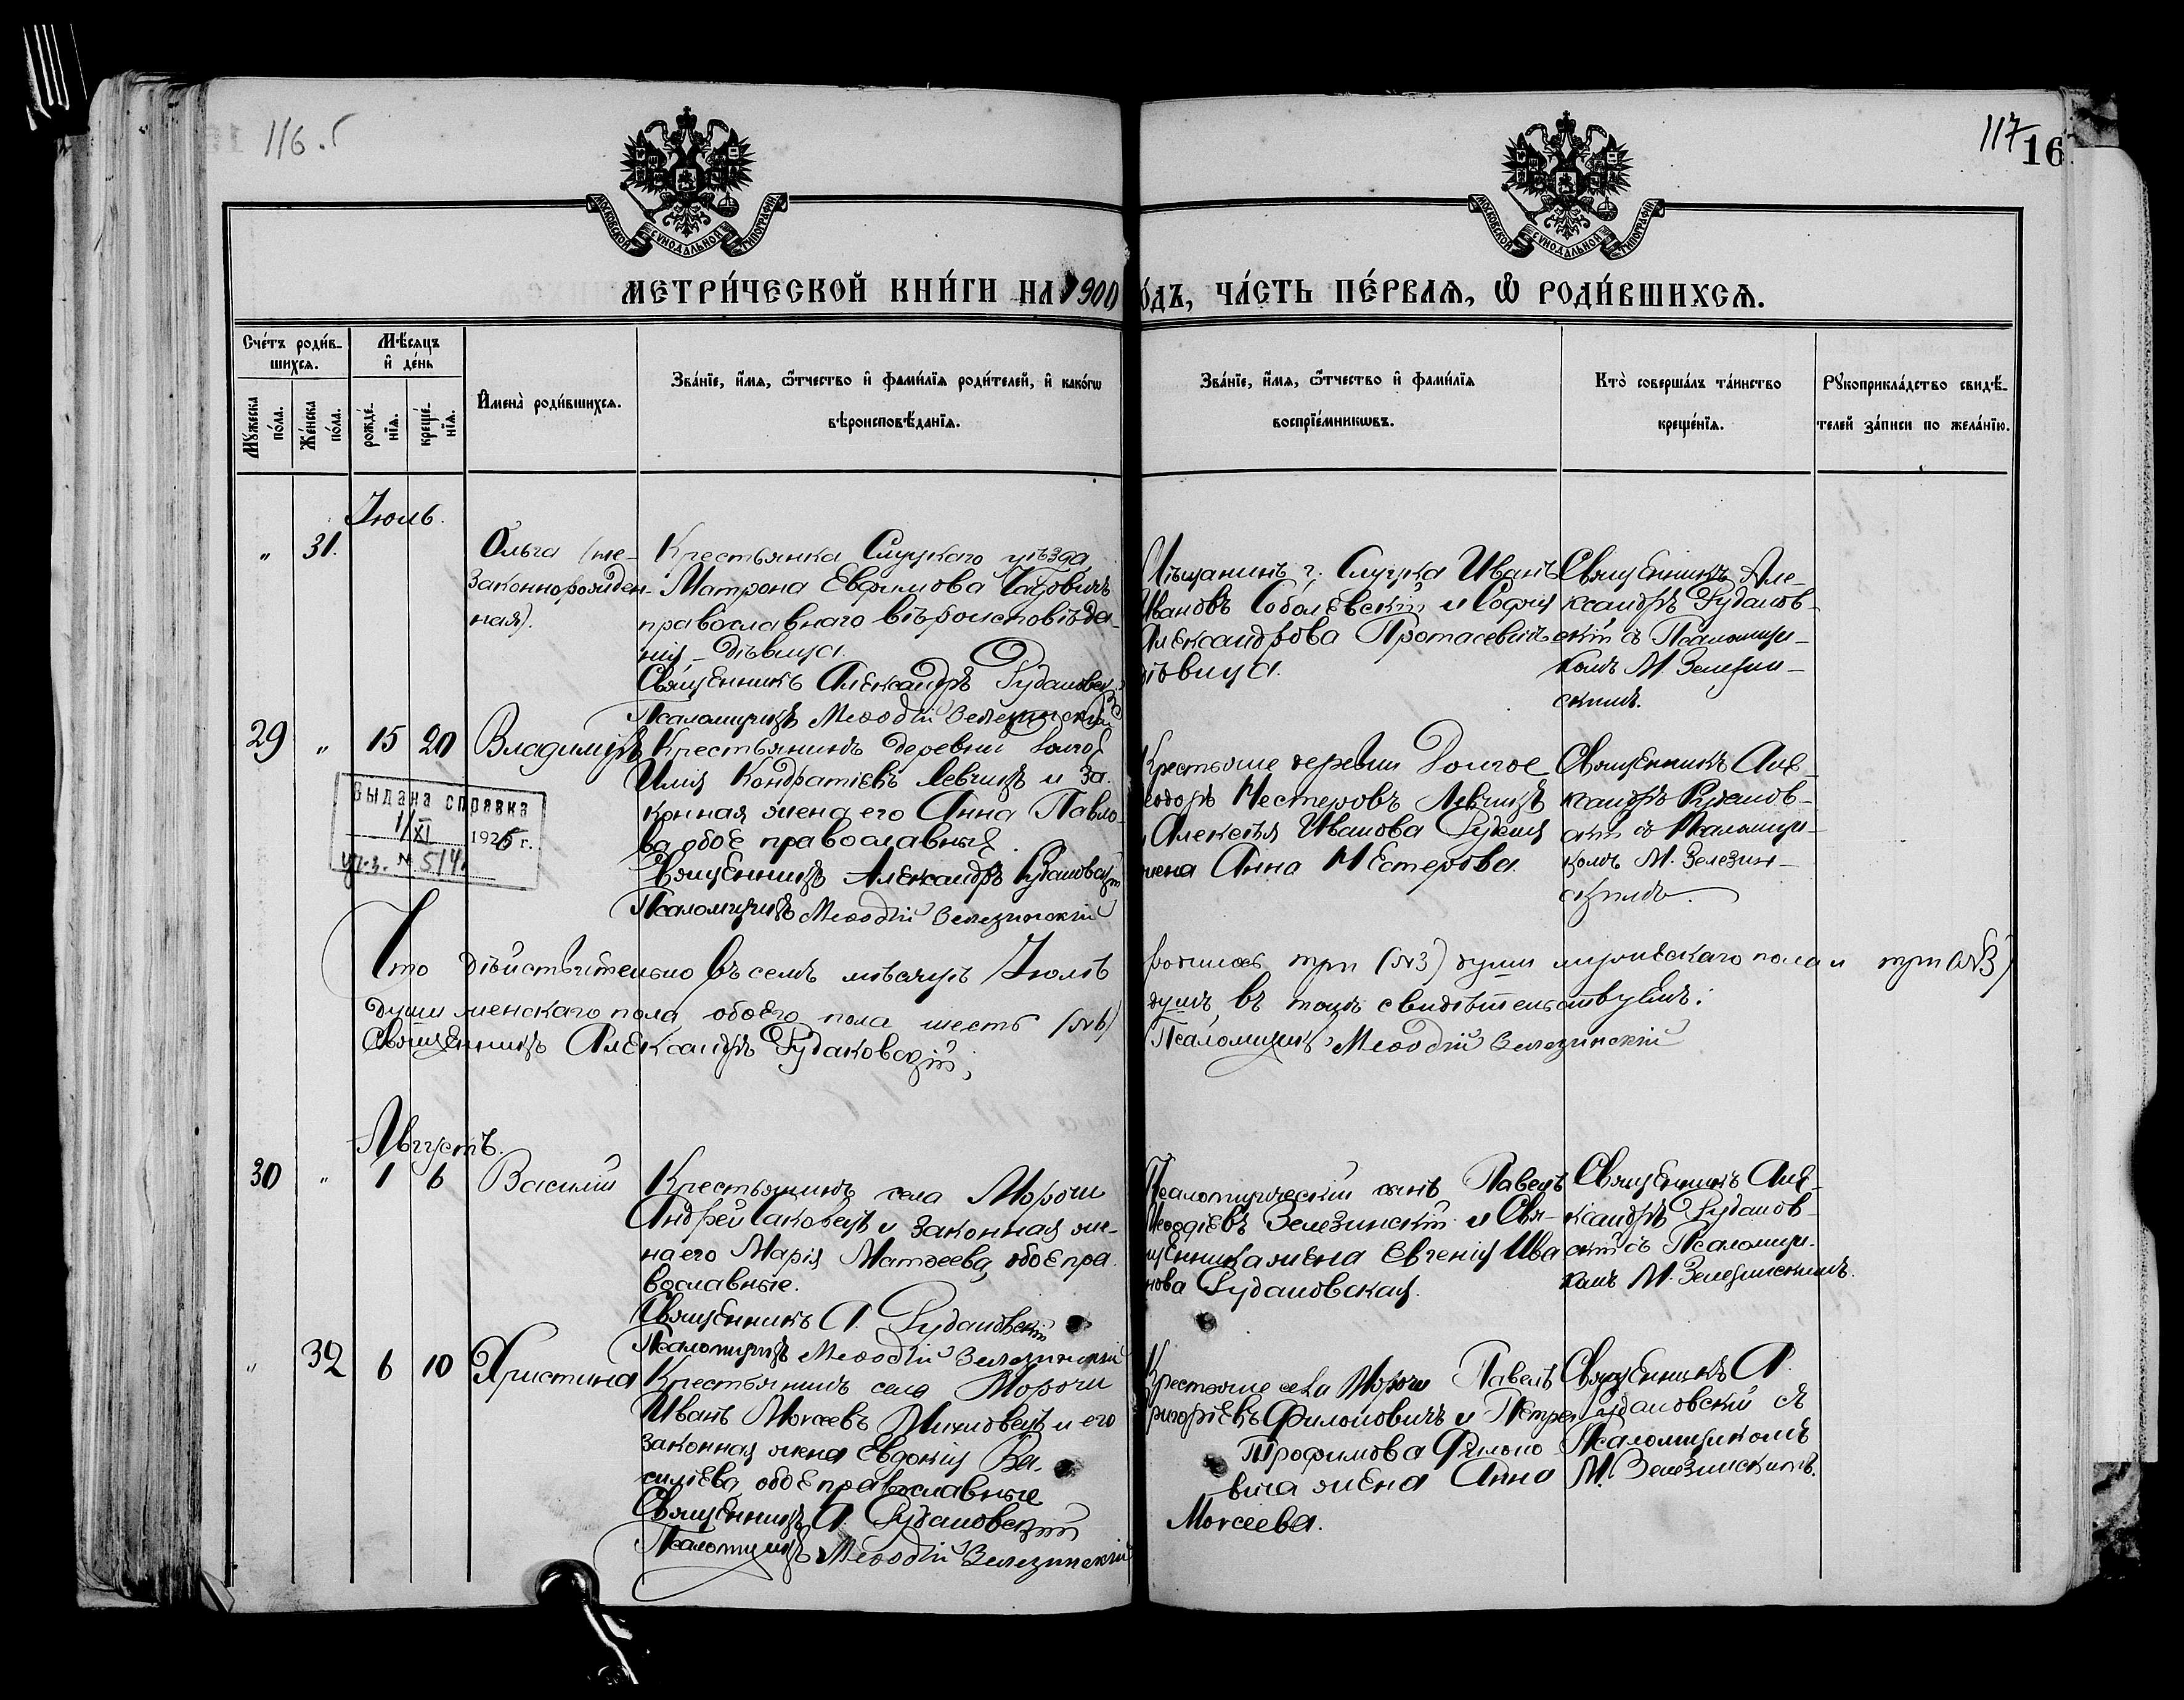 116.
117
16
МОСКОВСКОЙ СѴНОДАЛЬНОЙ ТИПОГРАФІИ
МОСКОВСКОЙ СѴНОДАЛЬНОЙ ТИПОГРАФІИ
МЕТРИ́ЧЕСКОЙ КНИ́ГИ НА 1900
о́дъ, ЧА́СТЬ ПЕ́РВАѦ, Ѡ РОДИ́ВШИХСѦ.
Сче́тъ роди́в-
шихсѧ.
Мѣ́сѧцъ
и҆ де́нь
Мꙋ́жеска
по́ла.
Же́нска
по́ла.
рожде́-
нїѧ.
креще́-
нїѧ.
И҆мена̀ роди́вшихсѧ.
Зва́нїе, и҆́мѧ, ѻ҆́тчество и҆ фами́лїѧ роди́телей, и҆ како́гѡ
вѣроисповѣ́данїѧ.
Зва́нїе, и҆́мѧ, ѻ҆́тчество и҆ фами́лїѧ
воспрїе́мникѡвъ.
Кто̀ соверша́лъ та́инство
креще́нїѧ.
Рꙋкоприкла́дство свидѣ́-
телей за́писи по жела́нїю.
Іюль.
" 31.
Ольга (не-
законнорожден-
ная).
Крестьянка Слуцкаго уѣзда
Матрона Евфимова
православнаго вѣроисповѣда-
нія – дѣвица.
Священникъ Александръ Рудаковскій
Псаломщикъ Меѳодій Зелезинскій
Мѣщанинъ г. Слуцка Иванъ
Ивановъ Соболевскій и Софія
Александрова Протасевичъ
дѣвица.
Священникъ Але-
ксандръ Рудаков-
скій съ Псаломщи-
комъ М. Зелезин-
скимъ.
29 " 15 20
Владиміръ
Крестьянинъ деревни Долгое
Илія Кондратіевъ Левчикъ и за-
конная жена его Анна Павло-
ва обое православные.
Священникъ Александръ Рудаковскій
Псаломщикъ Меѳодій Зелезинскій
Крестьяне деревни Долгое
еодоръ Нестеровъ Левчикъ
Алексѣя Иванова
жена Анна Нестерова.
Священникъ Але-
ксандръ Рудаков-
скій съ Псаломщи-
комъ М. Зелезин-
скимъ.
Выдана справка
1/XI 1926 г.
№ 514
Что дѣйствительно въ семъ мѣсяцѣ Іюлѣ
родилось три (№3) души мужескаго пола и три (№3)
души женскаго пола обоего пола шесть (№6)
душъ, въ томъ свидѣтельствуемъ:
Священникъ Александръ Рудаковскій,
Псаломщикъ Меѳодій Зелезинскій
Августъ.
30 " 1 6
Василій
Крестьянинъ села Морочи
Андрей и законная же-
на его Марія Матѳеева, обое пра-
вославные.
Священникъ А. Рудаковскій
Псаломщикъ Меѳодій Зелезинскій
Псаломщическій сынъ Павелъ
Меѳодіевъ Зелезинскій и Свя-
щенника жена Евгенія Ива
нова Рудаковская.
Священникъ Але-
ксандръ Рудаков-
скій съ Псаломщи-
комъ М. Зелезинскимъ.
" 32 6 10
Христина
Крестьянинъ села Морочи
Иванъ Моисеевъ и его
законная жена Евдокія Ва-
силіева, обое православные
Священникъ А. Рудаковскій
Псаломщикъ Меѳодій Зелезинскій
Крестьяне села Морочи Павелъ
Григоріевъ Филоновичъ и Петра
Трофимова Филоно
вича жена Анна
Моисеева.
Священникъ А.
Рудаковскій съ
Псаломщикомъ
М. Зелезинскимъ.